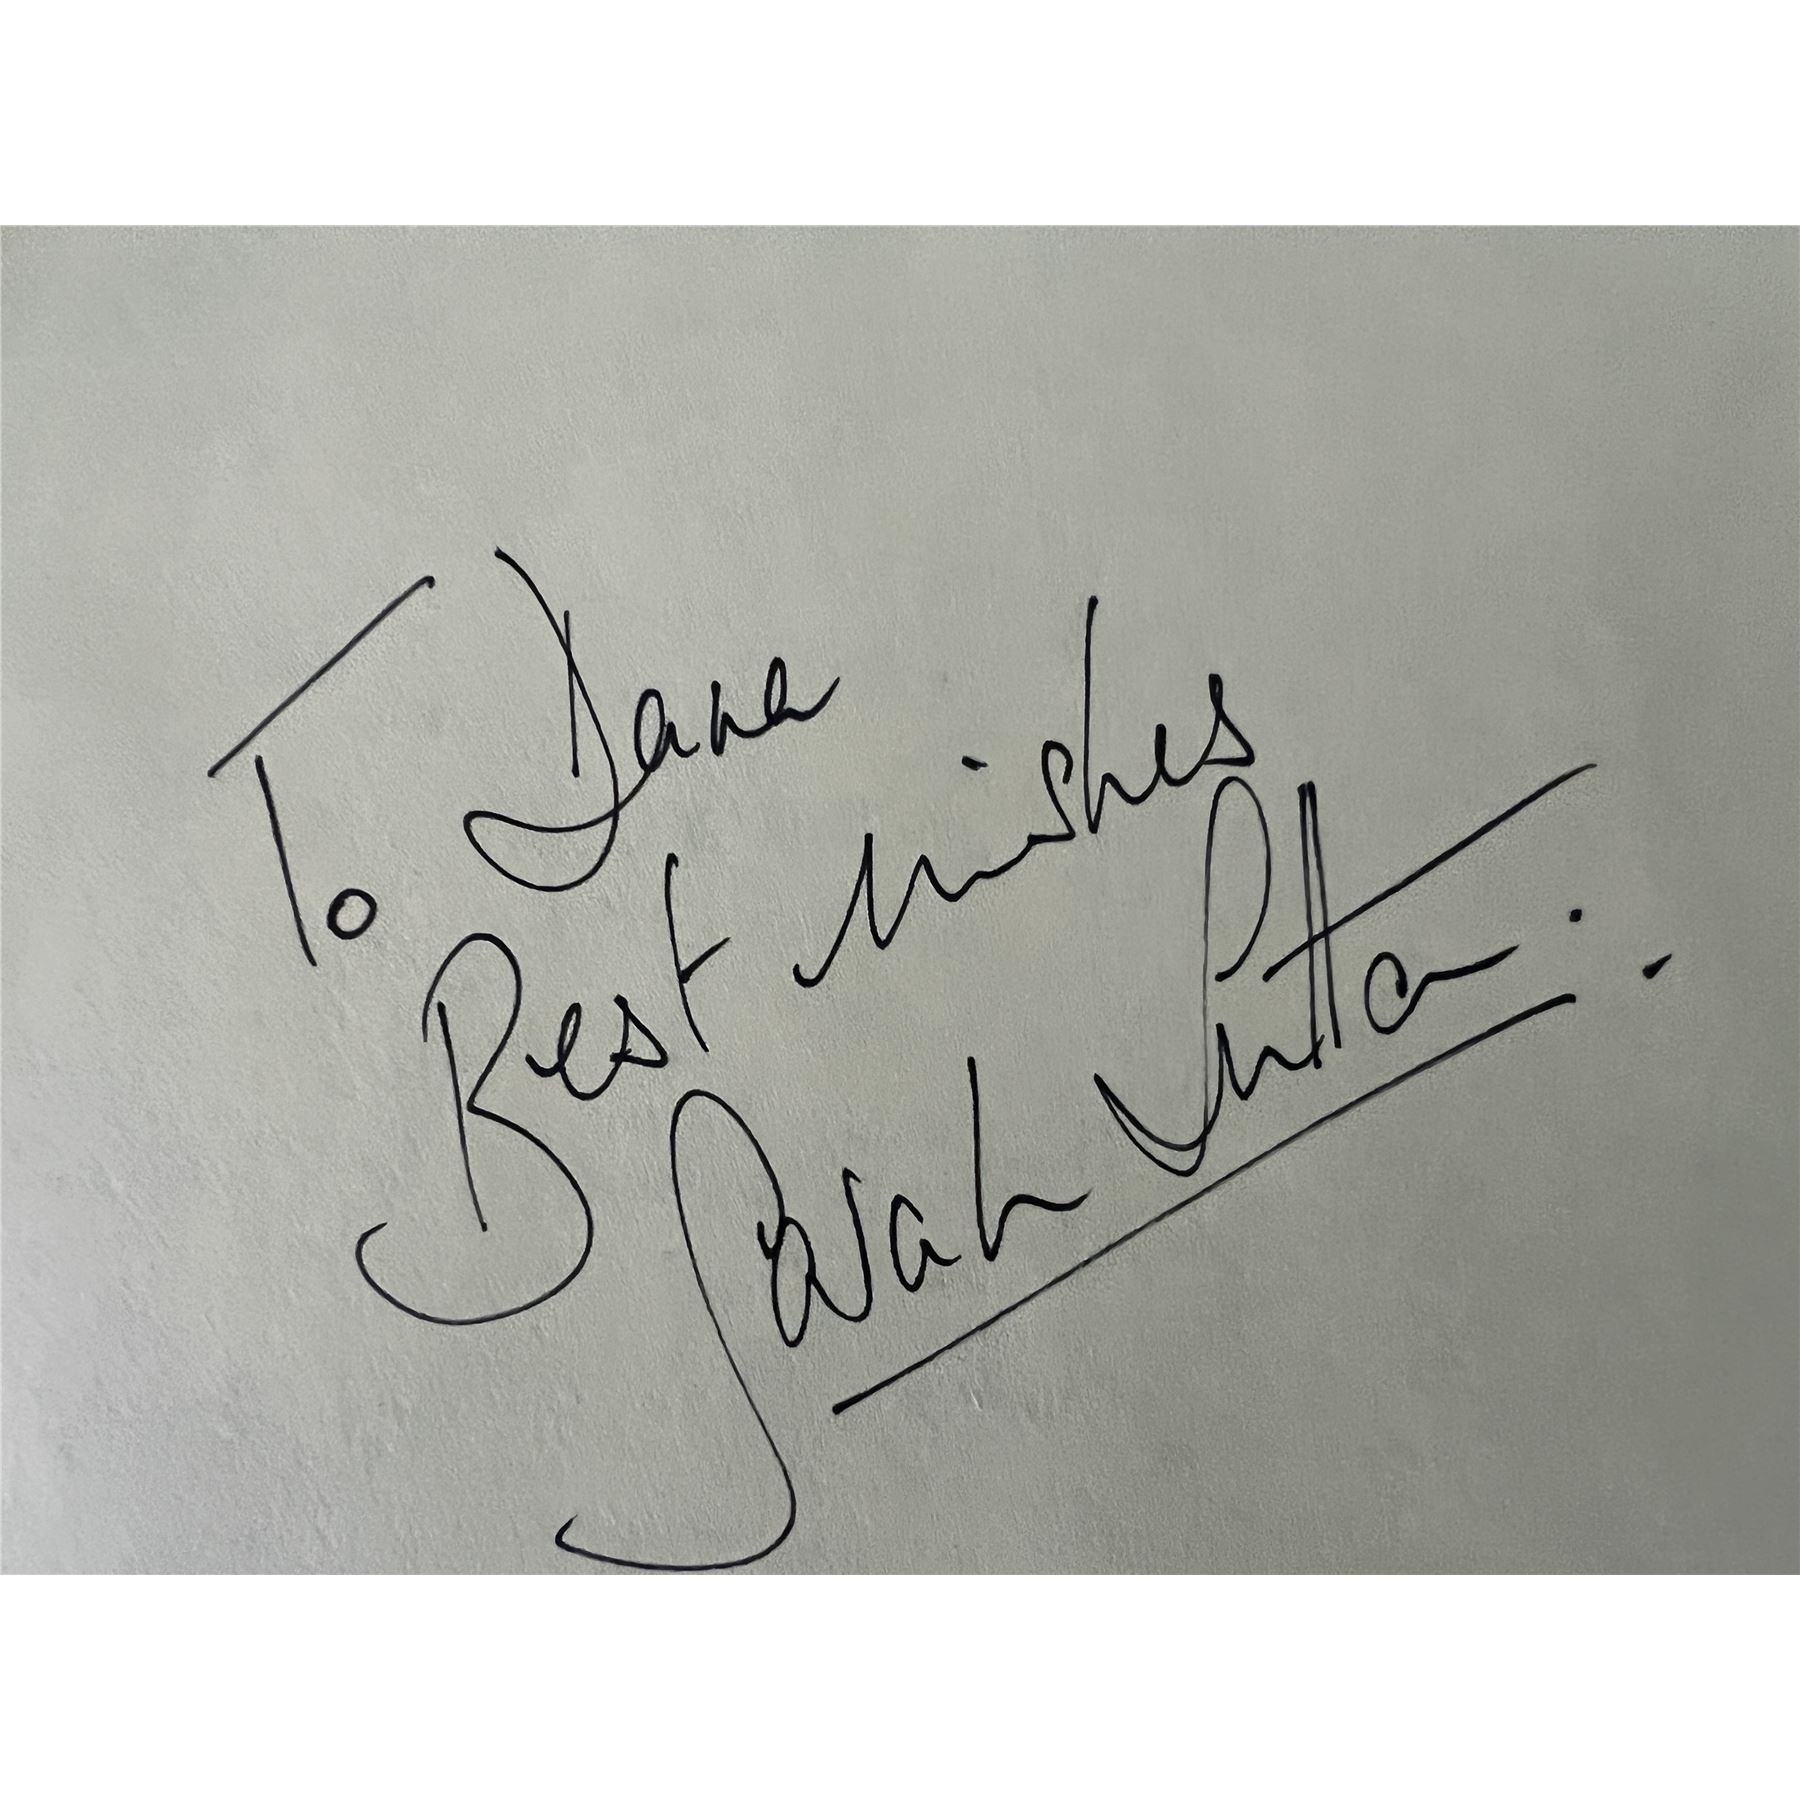 To Dave
Best wishes
Sarah Sutton.